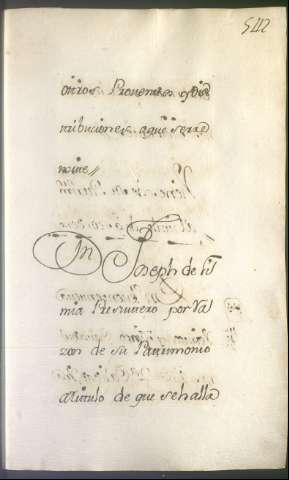 542
otros Proventos, ydis
tribuciones, aqueserre
mite//
Dn Joseph de
mia Presvitero por Ra
zon de su Patrimonio
atitulo de que sehalla